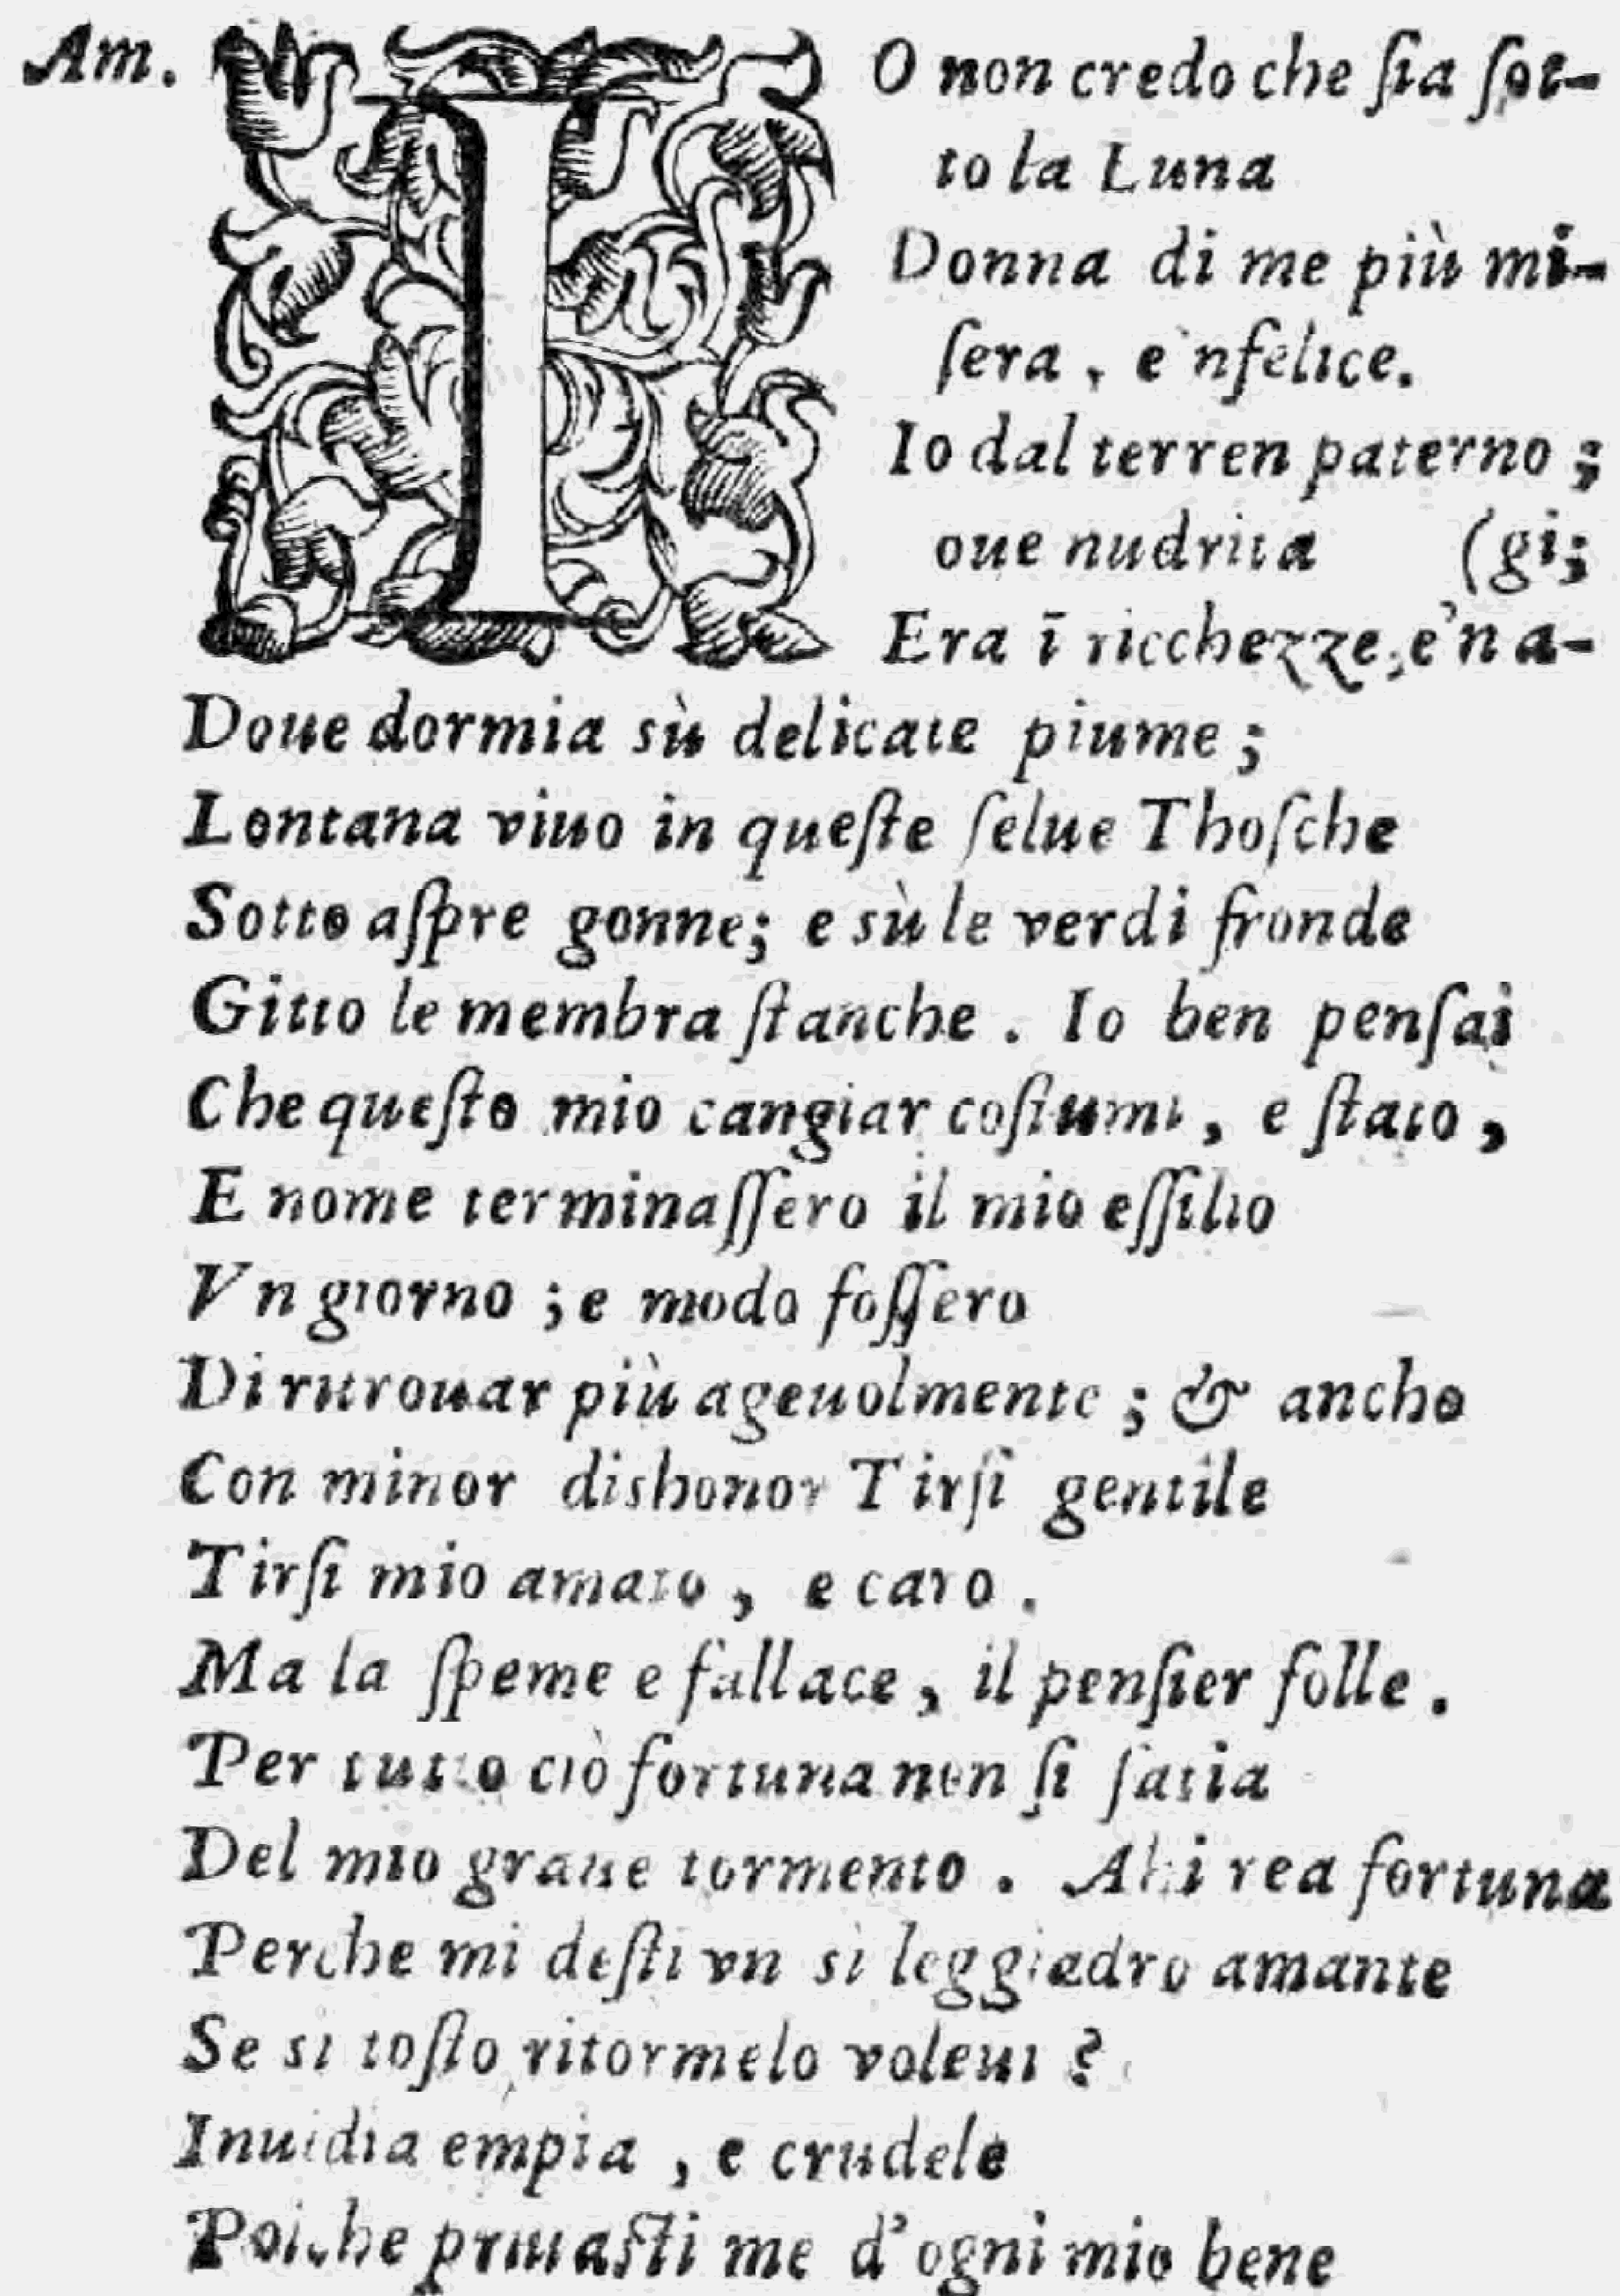 Am. IO non credo che ſia ſot-
to la Luna
Donna di me più mi-
ſera, e'nfelice.
Io dal terren paterno;
oue nudrita (gi;
Era ī ricchezze, e'n a-
Doue dormia sù delicate piume;
Lontana viuo in queſte ſelue Thoſche
Sotto aſpre gonne; e sù le verdi fronde
Gitto le membra ſtanche. Io ben penſai
Che queſto mio cangiar coſtumi, e ſtato,
E nome terminaſſero il mio eſſilio
Vn giorno; e modo foſſero
Di ritrouar più ageuolmente; & ancho
Con minor dishonor Tirſi gentile
Tirſi mio amato, e caro.
Ma la ſpeme e fallace, il penſier folle.
Per tutto ciò fortuna non ſi ſatia
Del mio graue tormento. Ahi rea fortuna
Perche mi deſti vn sì leggiadro amante
Se si toſto ritormelo voleui?
Inuidia empia, e crudele
Poiche priuaſti me d'ogni mio bene